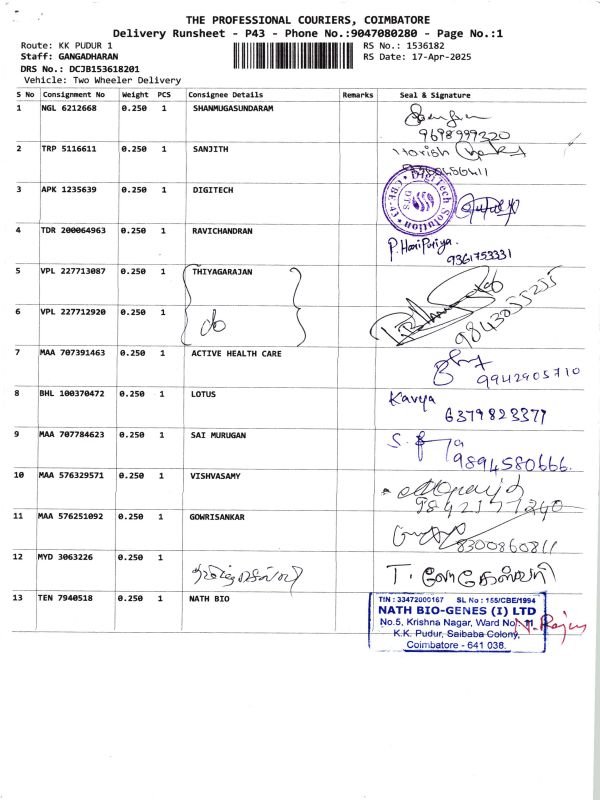 THE PROFESSIONAL COURIERS, COIMBATORE
Delivery Runsheet - P43 - Phone No.:9047080280 - Page No.:1
Route: KK PUDUR 1 RS No.: 1536182
Staff: GANGADHARAN RS Date: 17-Apr-2025
DRS No.: DCJB153618201
Vehicle: Two Wheeler Delivery
S No Consignment No Weight PCS Consignee Details Remarks Seal & Signature
1 NGL 6212668 0.250 1 SHANMUGASUNDARAM
9698999220
2 TRP 5116611 0.250 1 SANJITH Harish
3 APK 1235639 0.250 1 DIGITECH
DigiTech Solution
DTS
4 TDR 200064963 0.250 1 RAVICHANDRAN P. HariPuriya.
9361753331
5 VPL 227713087 0.250 1 THIYAGARAJAN
6 VPL 227712920 0.250 1 do 9843055255
7 MAA 707391463 0.250 1 ACTIVE HEALTH CARE
9942905710
8 BHL 100370472 0.250 1 LOTUS Kavya
6379823377
9 MAA 707784623 0.250 1 SAI MURUGAN
9894580666.
10 MAA 576329571 0.250 1 VISHVASAMY
11 MAA 576251092 0.250 1 GOWRISANKAR
8300860811
12 MYD 3063226 0.250 1
13 TEN 7940518 0.250 1 NATH BIO
TIN : 33472000167 SL No : 155/CBE/1994
NATH BIO-GENES (I) LTD
No.5, Krishna Nagar, Ward No. 11
K.K. Pudur, Saibaba Colony,
Coimbatore - 641 038.